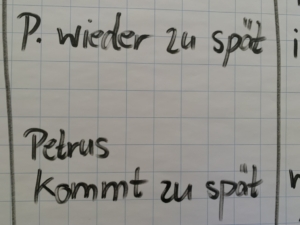 P. wieder zu spät
Petrus
kommt zu spät